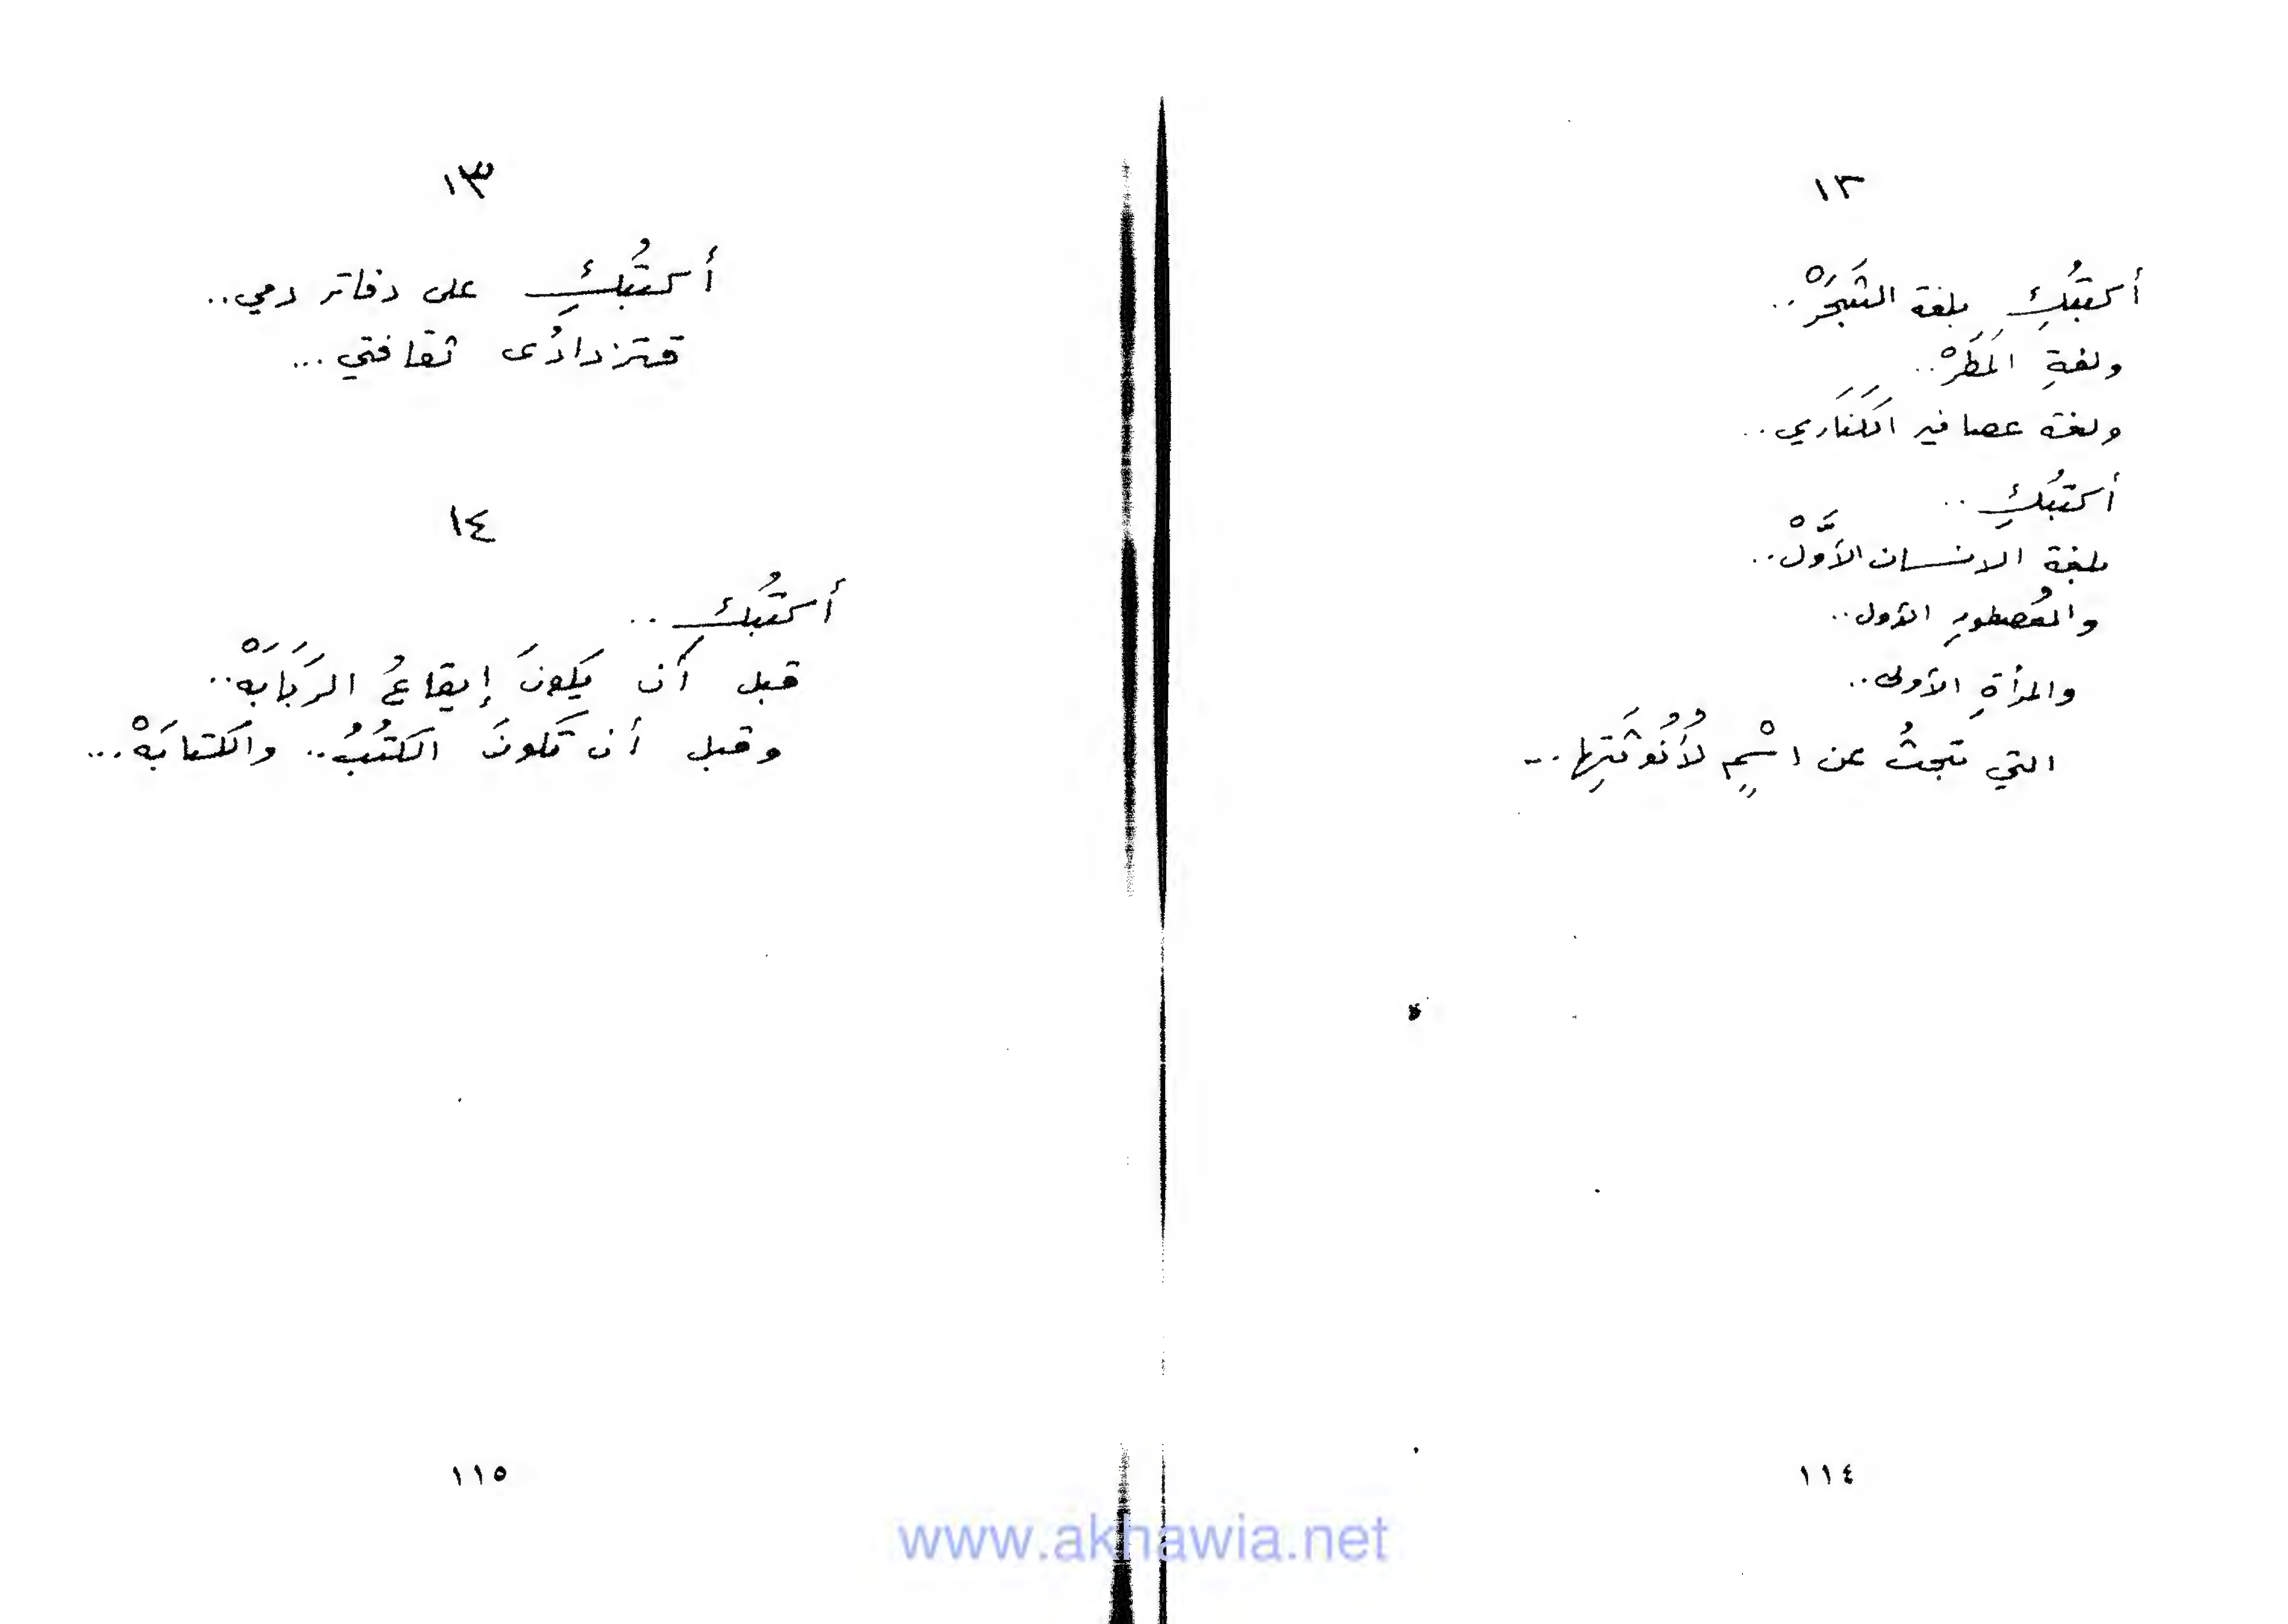 ١٢
أكتبُكِ بلغة الشَجَرْ..
ولغةِ المَطَرْ..
ولغة عصافير الكَنَاري..
أكتبُكِ..
بلغة الانسان الأوَّلْ..
والعُصفورِ الأول..
والمرأةِ الأولى..
التي تبحثُ عن اسْمٍ لأُنُوثَتِها...
١١٤
١٣
أكتُبُكِ على دفاتر دمي..
فتزدادُ ثقافتي...
١٤
أكتُبُكِ..
قبل أن يَكونَ إيقاعُ الرَبَابَهْ..
وقبل أن تكونَ الكتُبُ.. والكتابَهْ...
١١٥
www.akhawia.net